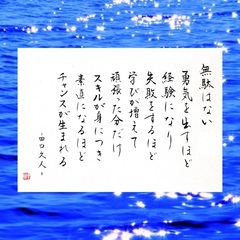 無駄はない
勇気を出すほど
経験になり
失敗をするほど
学びが増えて
頑張った分だけ
スキルが身につき
素直になるほど
チャンスが生まれる
-田口久人-